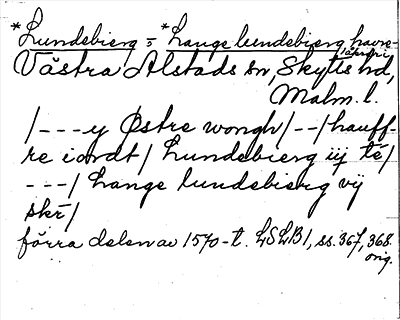 *Lundebierg = *Lange lundebierg, havre-
åkrar i
Västra Alstads sn, Skytts hd,
Malm. l.
/---y Østre wongh/--/hauff-
re iordt/ Lundebierg iij té/
---/ Lange lundebierg vij
skr̄/
förra delen av 1570-t. LSLB1, ss. 367, 368.
orig.